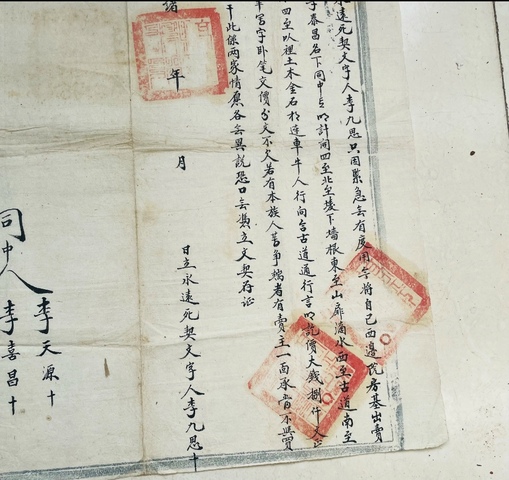 永遠死契文字人李九思只因緊急無有展用今將自己西邊院房基出賣
李泰昌名下同中言明計開四至北至墻下墻根東至山扉滴水西至古道南至
四至以裡土木金石相連車牛人行向合古道通行言明說價大錢捌仟文正
筆寫字臥笔交價分文不欠若有本族人等爭端者有賣主一面承當不與買
干此係兩家情愿各無異說恐口無憑立文契存証
緒
年
月
日立永遠死契文字人李九思十
同中人
李天源十
李喜昌十